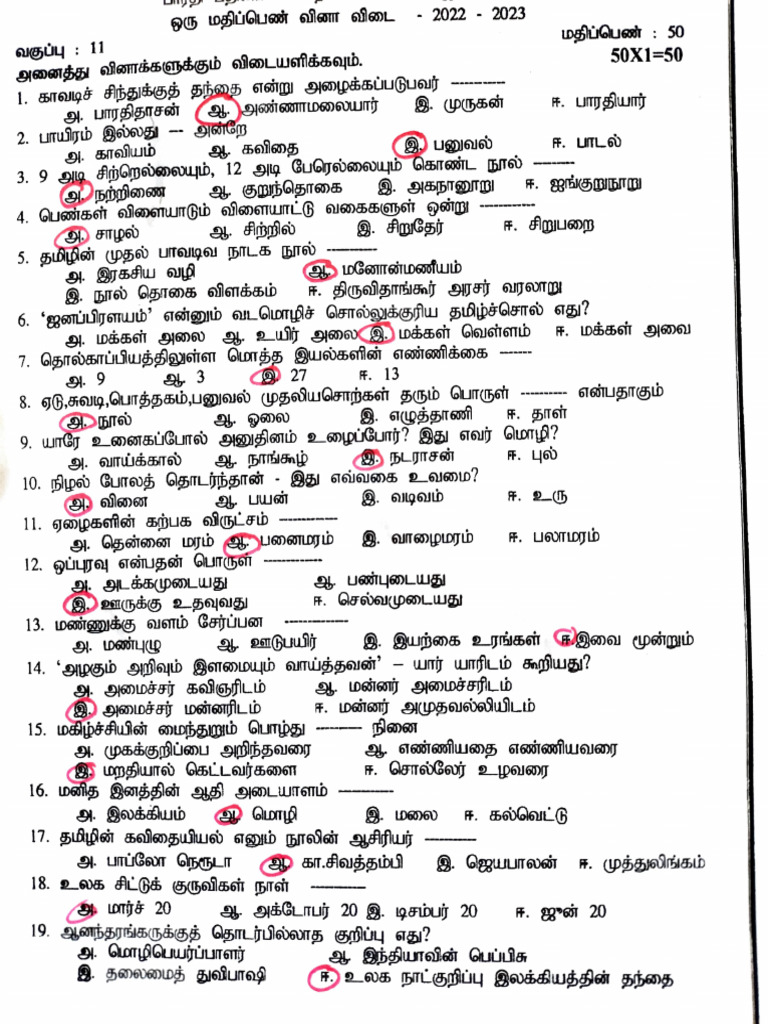 ஒரு மதிப்பெண் வினா விடை - 2022 - 2023
வகுப்பு : 11 மதிப்பெண் : 50
அனைத்து வினாக்களுக்கும் விடையளிக்கவும். 50X1=50
1. காவடிச் சிந்துக்குத் தந்தை என்று அழைக்கப்படுபவர் -----------
அ. பாரதிதாசன் ஆ. அண்ணாமலையார் இ. முருகன் ஈ. பாரதியார்
2. பாயிரம் இல்லது --- அன்றே
அ. காவியம் ஆ. கவிதை இ. பனுவல் ஈ. பாடல்
3. 9 அடி சிற்றெல்லையும், 12 அடி பேரெல்லையும் கொண்ட நூல் --------
அ. நற்றிணை ஆ. குறுந்தொகை இ. அகநானூறு ஈ. ஐங்குறுநூறு
4. பெண்கள் விளையாடும் விளையாட்டு வகைகளுள் ஒன்று ------------
அ. சாழல் ஆ. சிற்றில் இ. சிறுதேர் ஈ. சிறுபறை
5. தமிழின் முதல் பாவடிவ நாடக நூல் -----------
அ. இரகசிய வழி ஆ. மனோன்மணீயம்
இ. நூல் தொகை விளக்கம் ஈ. திருவிதாங்கூர் அரசர் வரலாறு
6. ‘ஜனப்பிரளயம்’ என்னும் வடமொழிச் சொல்லுக்குரிய தமிழ்ச்சொல் எது?
அ. மக்கள் அலை ஆ. உயிர் அலை இ. மக்கள் வெள்ளம் ஈ. மக்கள் அவை
7. தொல்காப்பியத்திலுள்ள மொத்த இயல்களின் எண்ணிக்கை -------
அ. 9 ஆ. 3 இ. 27 ஈ. 13
8. ஏடு,சுவடி,பொத்தகம்,பனுவல் முதலியசொற்கள் தரும் பொருள் ---------- என்பதாகும்
அ. நூல் ஆ. ஓலை இ. எழுத்தாணி ஈ. தாள்
9. யாரே உனைகப்போல் அனுதினம் உழைப்போர்? இது எவர் மொழி?
அ. வாய்க்கால் ஆ. நாங்கூழ் இ. நடராசன் ஈ. புல்
10. நிழல் போலத் தொடர்ந்தான் - இது எவ்வகை உவமை?
அ. வினை ஆ. பயன் இ. வடிவம் ஈ. உரு
11. ஏழைகளின் கற்பக விருட்சம் ------------
அ. தென்னை மரம் ஆ. பனைமரம் இ. வாழைமரம் ஈ. பலாமரம்
12. ஒப்புரவு என்பதன் பொருள் ------------
அ. அடக்கமுடையது ஆ. பண்புடையது
இ. ஊருக்கு உதவுவது ஈ. செல்வமுடையது
13. மண்ணுக்கு வளம் சேர்ப்பன -------------
அ. மண்புழு ஆ. ஊடுபயிர் இ. இயற்கை உரங்கள் ஈ.இவை மூன்றும்
14. ‘அழகும் அறிவும் இளமையும் வாய்த்தவன்’ – யார் யாரிடம் கூறியது?
அ. அமைச்சர் கவிஞரிடம் ஆ. மன்னர் அமைச்சரிடம்
இ. அமைச்சர் மன்னரிடம் ஈ. மன்னர் அமுதவல்லியிடம்
15. மகிழ்ச்சியின் மைந்துறும் பொழ்து --------- நினை
அ. முகக்குறிப்பை அறிந்தவரை ஆ. எண்ணியதை எண்ணியவரை
இ. மறதியால் கெட்டவர்களை ஈ. சொல்லேர் உழவரை
16. மனித இனத்தின் ஆதி அடையாளம் -----------
அ. இலக்கியம் ஆ. மொழி இ. மலை ஈ. கல்வெட்டு
17. தமிழின் கவிதையியல் எனும் நூலின் ஆசிரியர் -----------
அ. பாப்லோ நெரூடா ஆ. கா.சிவத்தம்பி இ. ஜெயபாலன் ஈ. முத்துலிங்கம்
18. உலக சிட்டுக் குருவிகள் நாள் -----------
அ. மார்ச் 20 ஆ. அக்டோபர் 20 இ. டிசம்பர் 20 ஈ. ஜூன் 20
19. ஆனந்தரங்கருக்குத் தொடர்பில்லாத குறிப்பு எது?
அ. மொழிபெயர்ப்பாளர் ஆ. இந்தியாவின் பெப்பிசு
இ. தலைமைத் துவிபாஷி ஈ. உலக நாட்குறிப்பு இலக்கியத்தின் தந்தை